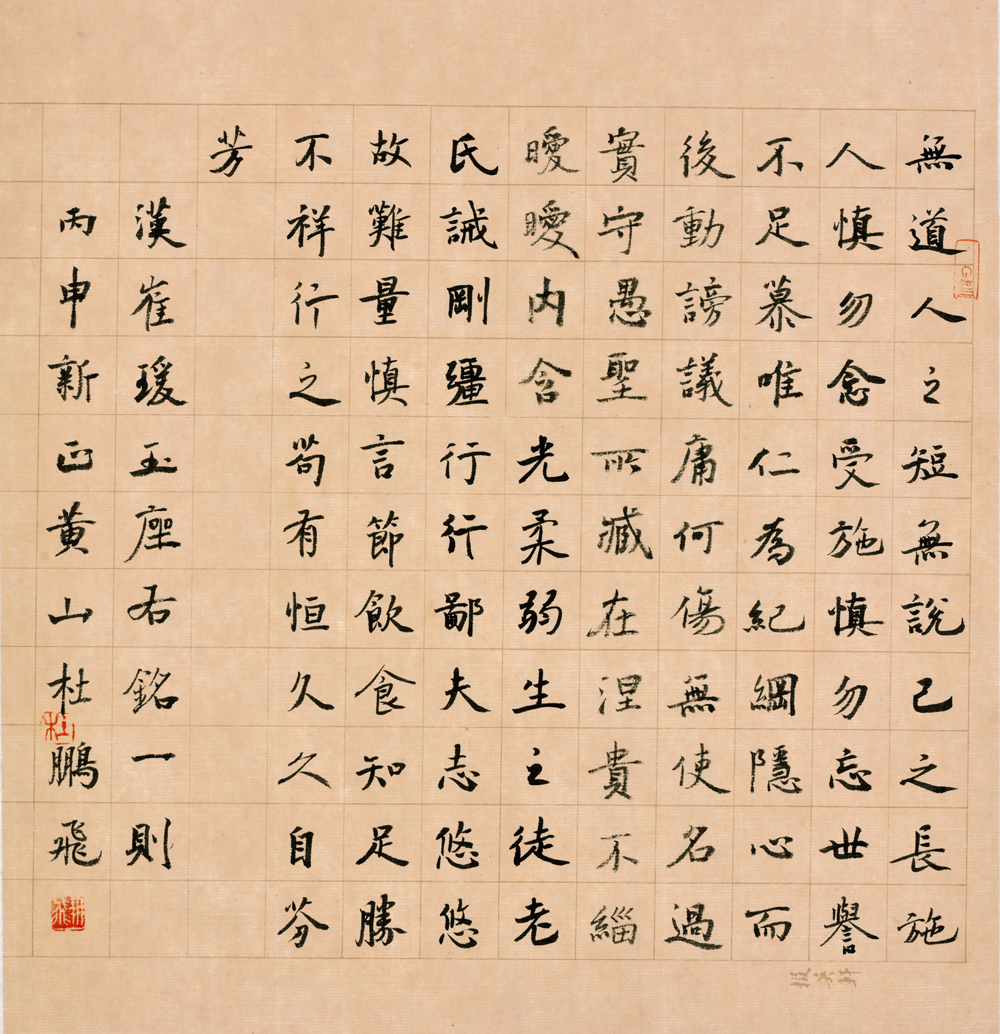 無道人之短無說己之長施
人慎勿念受施慎勿忘世譽
不足慕唯仁為紀綱隱心而
後動謗議庸何傷無使名過
實守愚聖所臧在涅貴不緇
曖曖內含光柔弱生之徒老
氏誡剛彊行行鄙夫志悠悠
故難量慎言節飲食知足勝
不祥行之苟有恒久久自芬
芳
漢崔瑗玉座右銘一則
丙申新正黃山杜鵬飛
杜
掇英軒